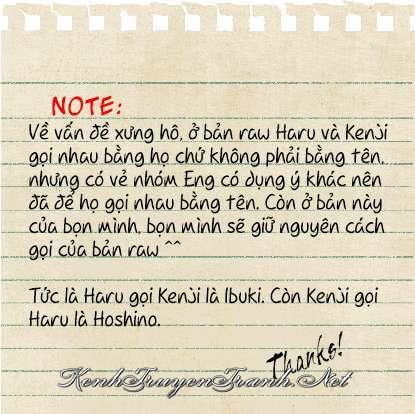 NOTE:
Về vấn đề xưng hô, ở bản raw Haru và Kenji
gọi nhau bằng họ chứ không phải bằng tên,
nhưng có vẻ nhóm Eng có dụng ý khác nên
đã để họ gọi nhau bằng tên. Còn ở bản này
của bọn mình, bọn mình sẽ giữ nguyên cách
gọi của bản raw ^^
Tức là Haru gọi Kenji là Ibuki. Còn Kenji gọi
Haru là Hoshino.
Thanks!
KenhTruyenTranh.Net